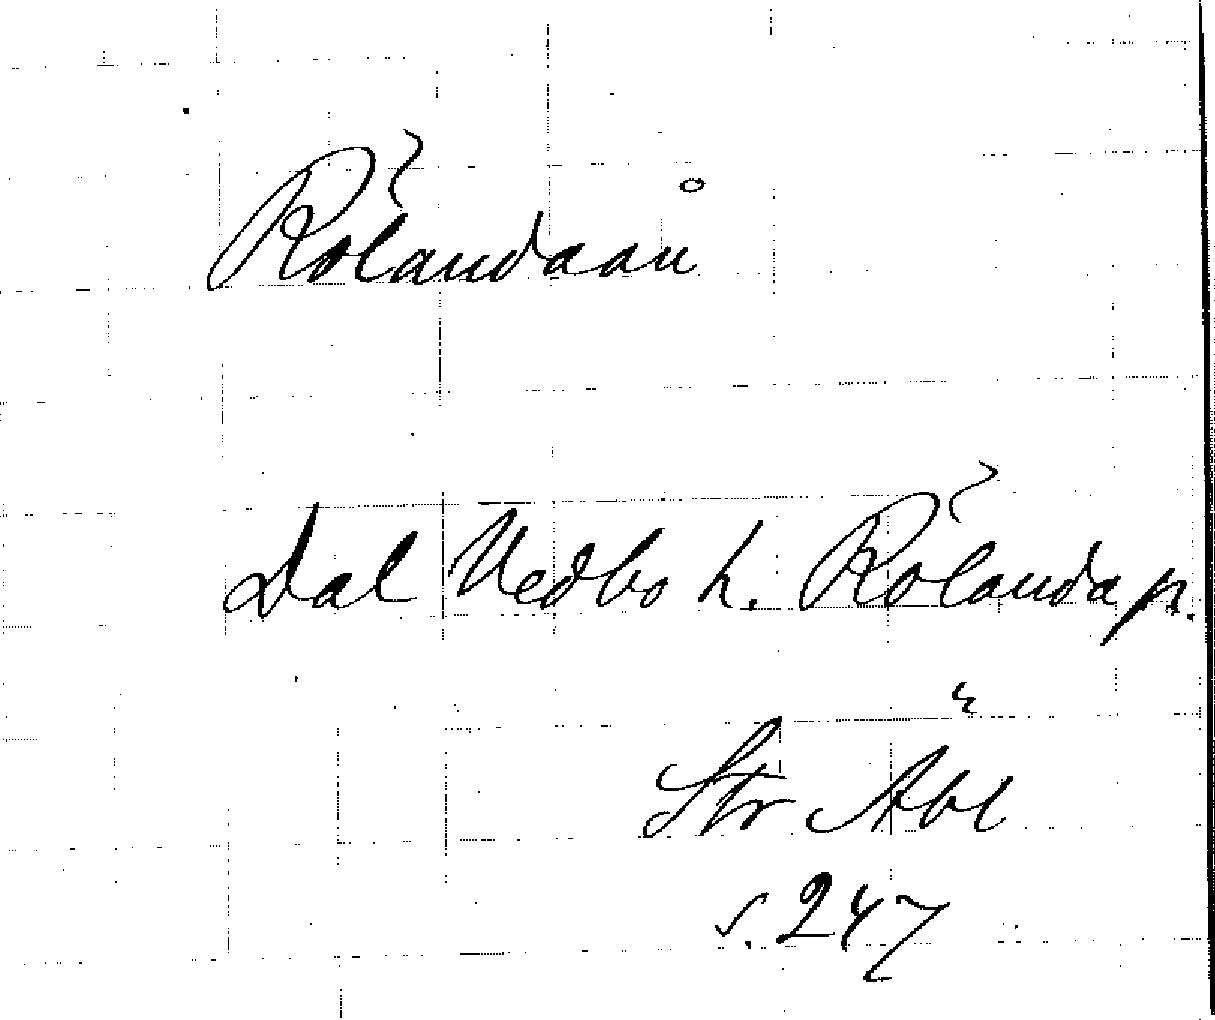 Rölandaån
Dal Vedbo h. Rölanda sn.
Str Äbl
s. 247